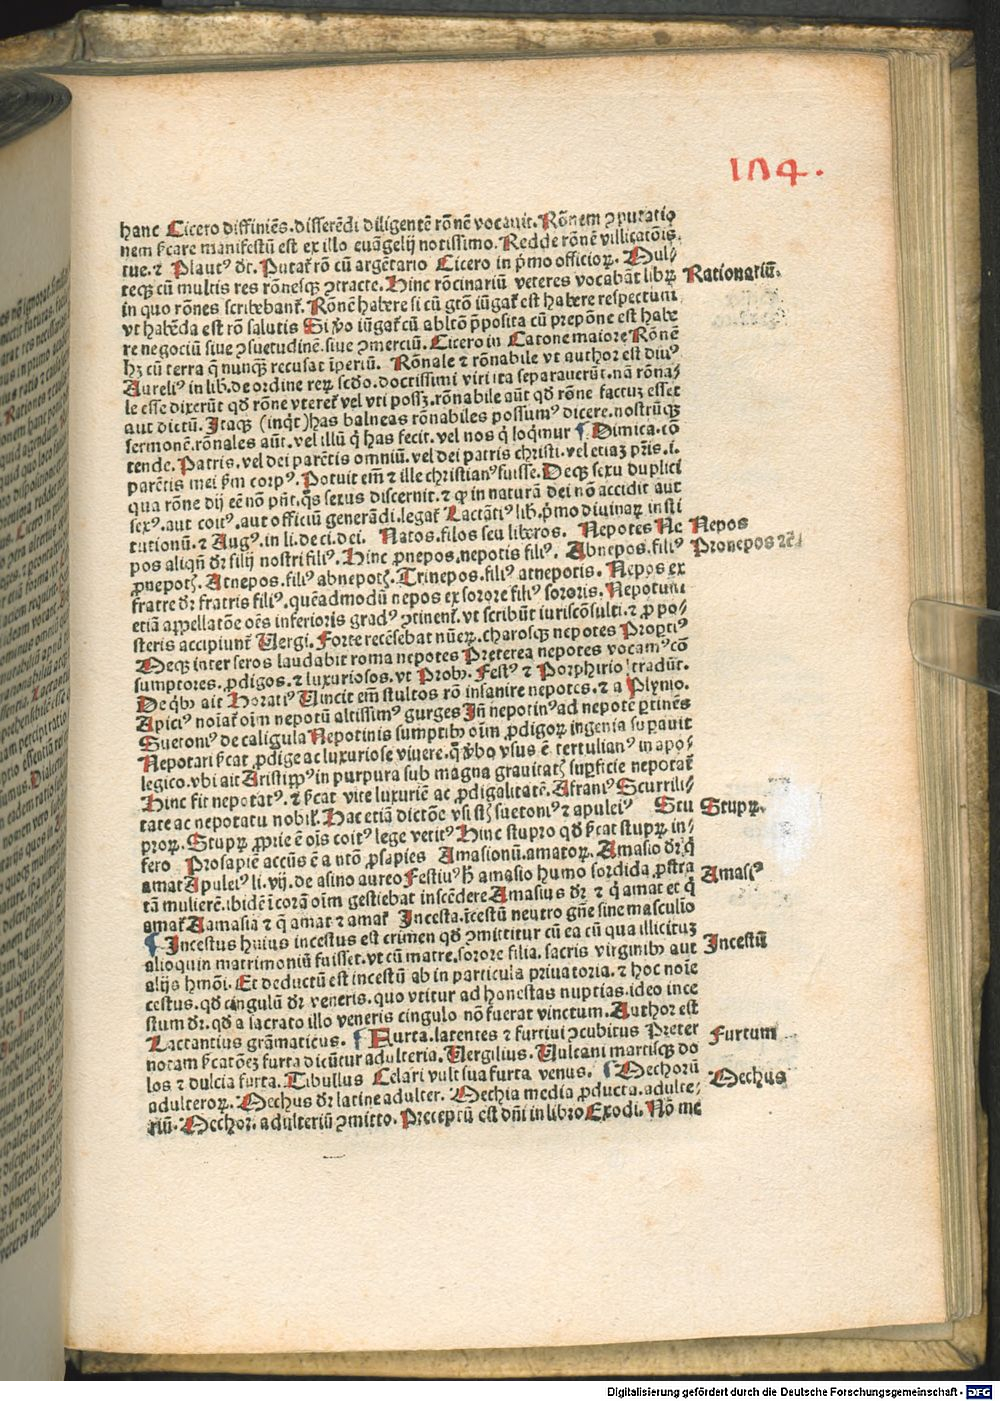 104.
hanc Cicero diffiniēs.differēdi diligentē rōnē vocauit. Rōnem ꝯputatio
nem ẜcare manifestū est ex illo euāgelij notissimo. Redde rōnē villicatōis
tue. ⁊ Plautꝰ dr̄. Putat̄ rō cū argētario Cicero in p̄mo officioꝝ. Mul-
teqꝫ cū multis res rōnesqꝫ ꝯtracte. Hinc rōcinariū veteres vocabāt libꝝ
Rationariū.
in quo rōnes scribebant̄. Rōnē habere si cū gtō iūgat̄ est habere respectum
vt habēda est rō salutis Si ꝟo iūgat̄ cū abltō p̄posita cū prepōne est habe
re negociū siue ꝯsuetudinē.siue ꝯmerciū. Cicero in Catone maiore Rōnē
hꝫ cū terra q̄ nunqꝫ recusat īperiū. Rōnale ⁊ rōnabile vt author est diuꝰ
Aureliꝰ in lib.de ordine reꝝ scd̄o.doctissimi viri ita separauerūt.nā rōna-
le esse dixerūt qd̄ rōne vteret̄ vel vti possꝫ.rōnabile aūt qd̄ rōne factuꝫ esset
aut dictū. Itaqꝫ (inq̄t) has balneas rōnabiles possumꝰ dicere.nostrūqꝫ
sermonē.rōnales aūt.vel illū q̄ has fecit.vel nos q̄ loq̄mur ¶ Dimica.cō
tende. Patris.vel dei parētis omniū.vel dei patris christi.vel etiaꝫ pr̄is.i.
parētis mei ẜm corpꝰ. Potuit em̄ ⁊ ille christianꝰ fuisse. Deqꝫ sexu duplici
qua rōne dij eē nō pn̄t.q̄s sexus discernit.⁊ ꝙ in naturā dei nō accidit aut
sexꝰ.aut coitꝰ.aut officiū generādi.legat̄ Lactātiꝰ lib.p̄mo diuinaꝝ insti
tutionū.⁊ Augꝰ.in li.de ci.dei. Natos.filos seu liberos. Nepotes Ne
Nepos
pos aliqn̄ dr̄ filij nostri filiꝰ. Hinc ꝓnepos.nepotis filiꝰ. Abnepos.filiꝰ
Pronepos ⁊c̄
ꝓnepotꝭ. Atnepos.filiꝰ abnepotꝭ. Trinepos.filiꝰ atnepotis. Nepos ex
fratre dr̄ fratris filiꝰ.quēadmodū nepos ex sorore filiꝰ sororis. Nepotum
etiā appellatōe oēs inferioris gradꝰ ꝯtinent̄.vt scribūt iuriscōsulti.⁊ ꝓ po-
steris accipiunt̄ Vergi. Forte recēsebat nūeꝝ.charosqꝫ nepotes Proptiꝰ
Deqꝫ inter seros laudabit roma nepotes Preterea nepotes vocamꝰ cō
sumptores.ꝓdigos.⁊ luxuriosos.vt Probꝰ. Festꝰ ⁊ Porphirio tradūt.
De qbꝰ ait Horatiꝰ Vincit em̄ stultos rō insanire nepotes.⁊ a Plynio.
Apiciꝰ noīat̄ oīm nepotū altissimꝰ gurges In̄ nepotinꝰ ad nepotē ꝑtinēs
Suetoniꝰ de caligula Nepotinis sumptibꝰ oīm ꝓdigoꝝ ingenia suꝑauit
Nepotari ẜcat ꝓdige ac luxuriose viuere.q̄ ꝟbo vsus ē tertulianꝰ in apo-
legico.vbi ait Aristippꝰ in purpura sub magna grauitatꝭ suꝑficie nepotat̄
Hinc fit nepotatꝰ.⁊ ẜcat vite luxuriē ac ꝓdigalitatē. Afraniꝰ Scurrili-
tate ac nepotatu nobil̄. Hac etiā dictōe vsi st̄ suetoniꝰ ⁊ apuleiꝰ Stu
Stupꝝ.
proꝝ. Stupꝝ ꝓprie ē oīs coitꝰ lege vetitꝰ Hinc stupro qd̄ ẜcat stupꝝ in-
fero Prosapiē accūs ē a ntō ꝓsapies Amasionū.amatoꝝ. Amasio dr̄ q̄
amat Apuleiꝰ li.vij.de asino aureo Festiuꝰ h̄ amasio humo sordida ꝓstra
Amasiꝰ
tā mulierē.ibidē īcorā oīm gestiebat inscēdere Amasius dr̄ ⁊ q̄ amat et q̄
amat̄ Aamasia ⁊ q̄ amat ⁊ amat̄ Incesta.īcestū neutro gn̄e sine masculīo
¶ Incestus huius incestus est crimen qd̄ ꝯmittitur cū ea cū qua illicituꝫ
Incestū
alioquin matrimoniū fuisset.vt cū matre.sorore filia.sacris virginibꝰ aut
alijs hmōi. Et deductū est incestū ab in particula priuatoria.⁊ hoc noīe
cestus.qd̄ cingulū dr̄ veneris.quo vtitur ad honestas nuptias.ideo ince
stum dr̄.qd̄ a sacrato illo veneris cingulo nō fuerat vinctum. Author est
Lactantius grāmaticus. ¶ Furta.latentes ⁊ furtiui ꝯcubitus Preter
Furtum
notam ẜcatōeꝫ furta dicūtur adulteria. Vergilius. Vulcani martisqꝫ do
los ⁊ dulcia furta. Tibullus Celari vult sua furta venus. ¶ Mechorū
Mechus
adulteroꝝ. Mechus dr̄ latine adulter. Mechia media ꝓducta.adulte-
riū. Mechor.adulteriū ꝯmitto. Preceptū est dn̄i in libro Exodi. Nō me
Digitalisierung gefördert durch die Deutsche Forschungsgemeinschaft - DFG